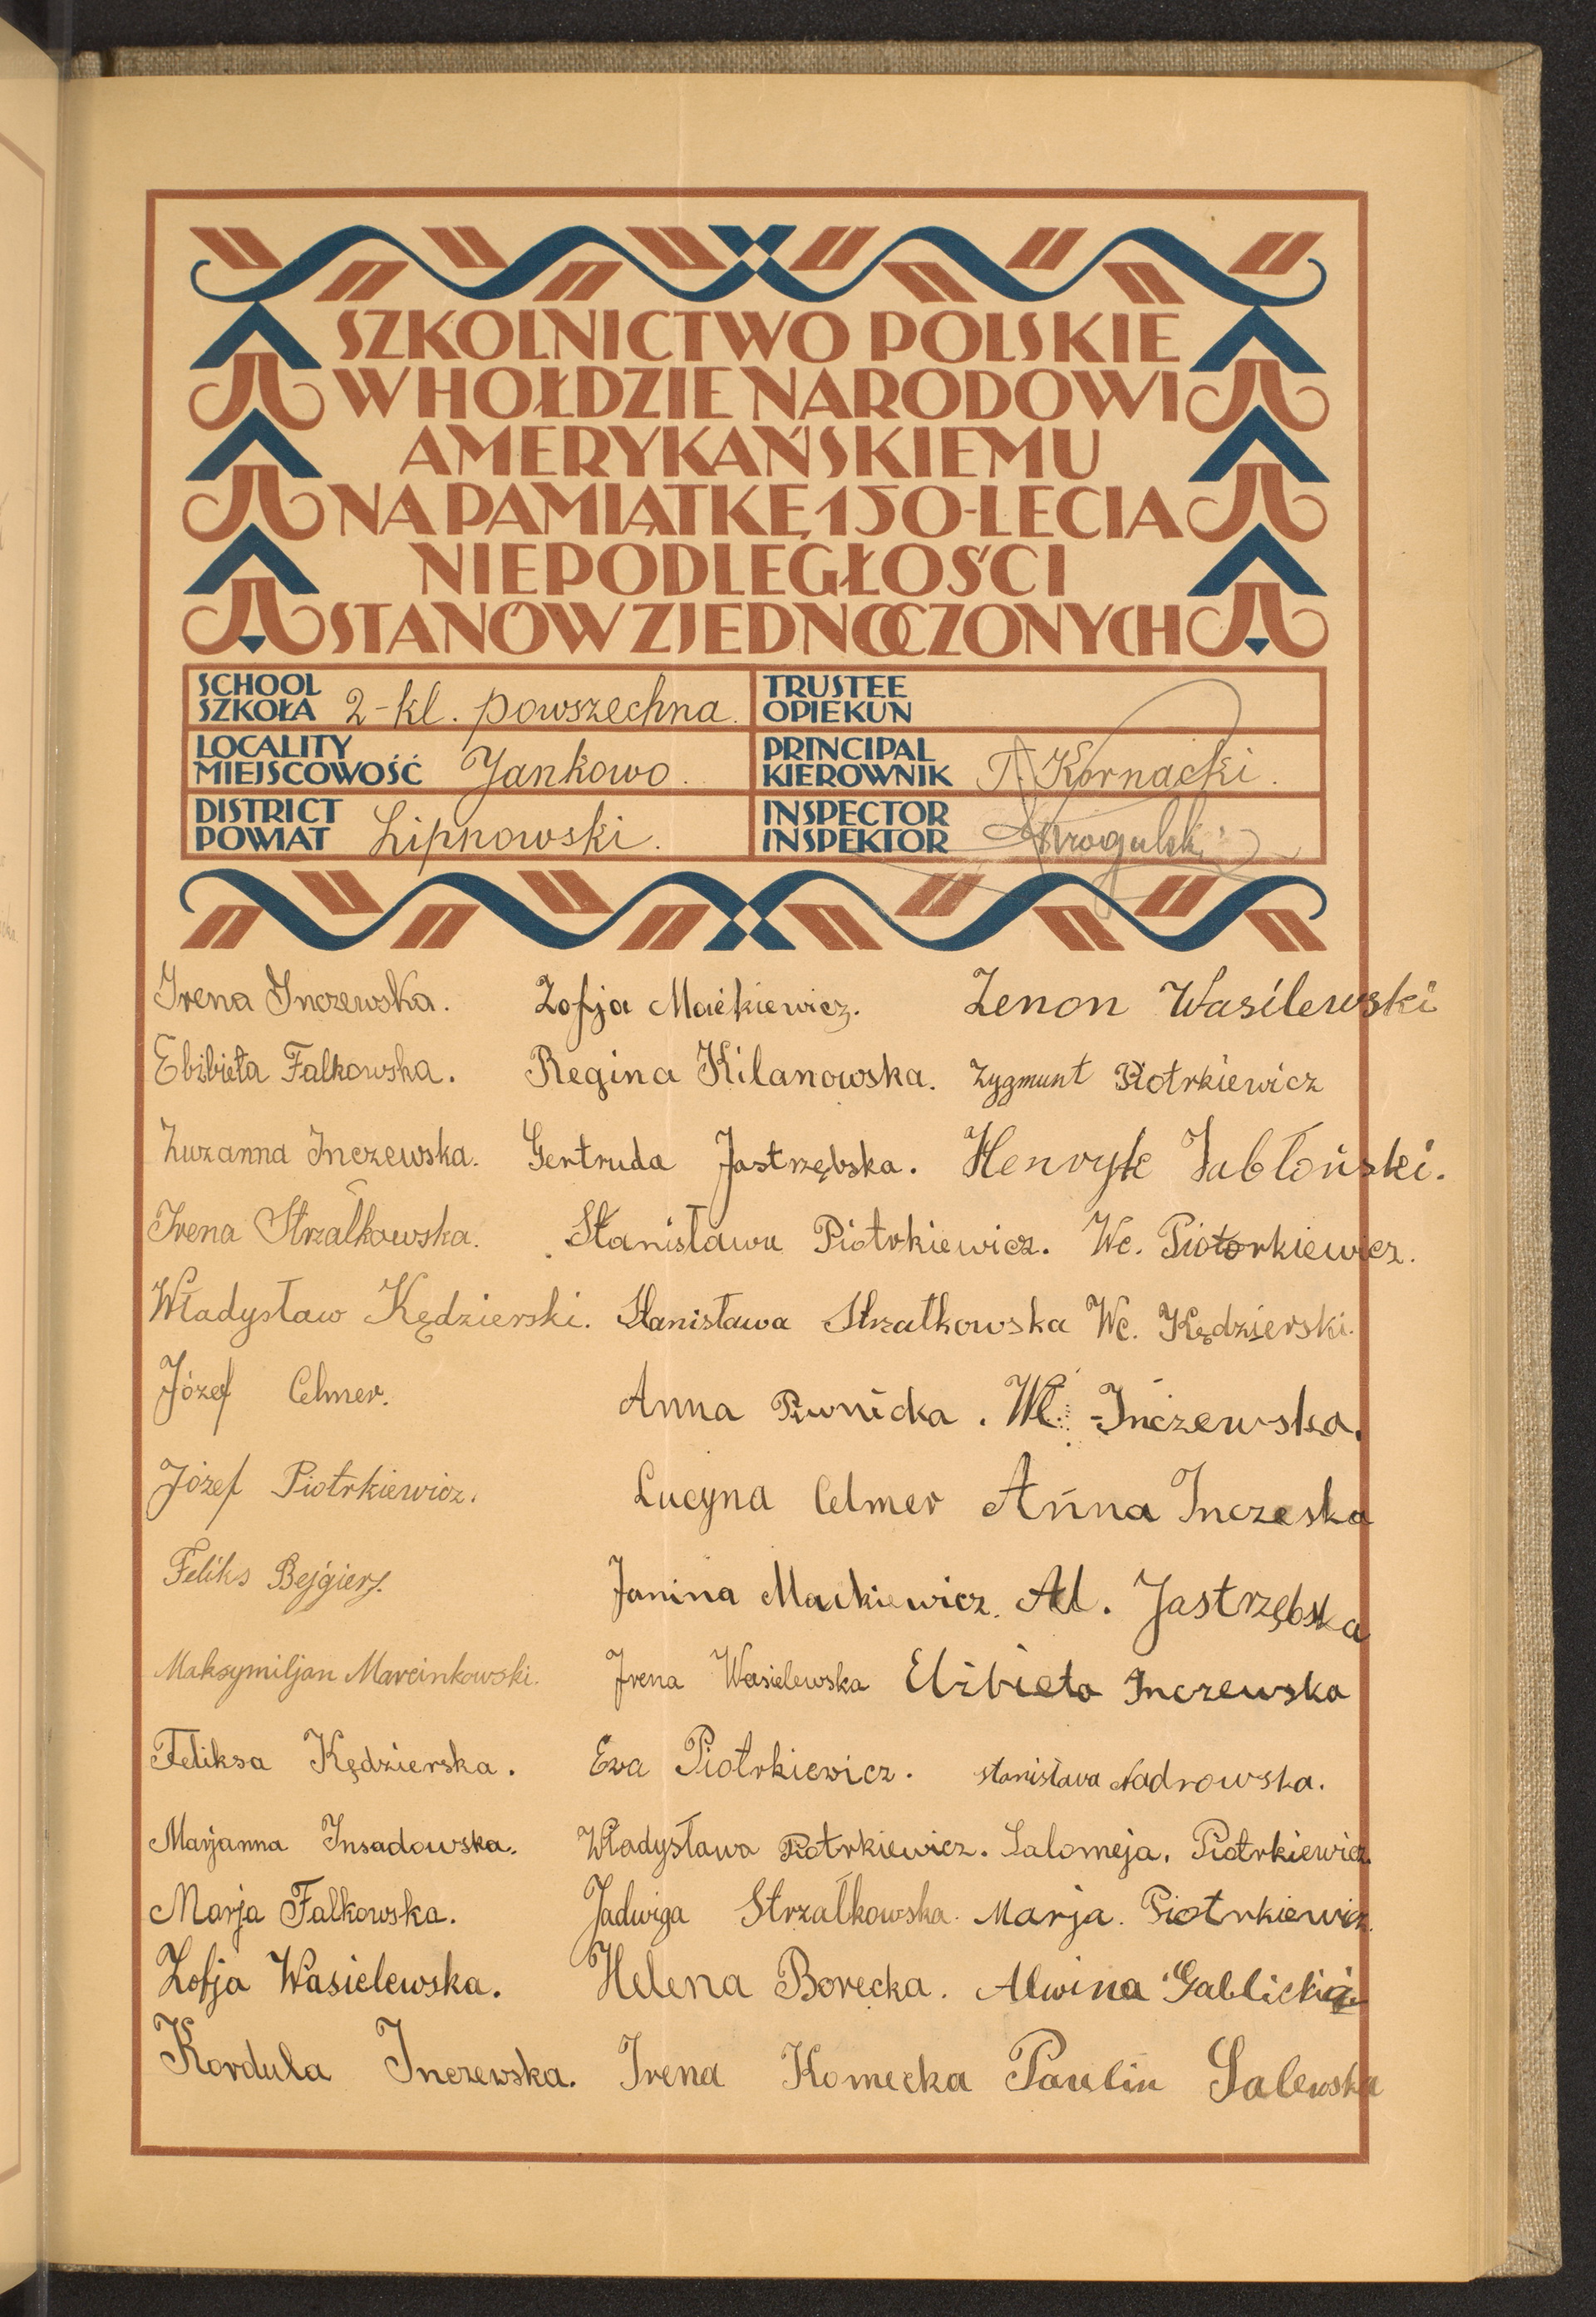 SZKOLNICTWO POLSKIE
W HOŁDZIE NARODOWI
AMERYKAŃSKIEMU
NA PAMIĄTKĘ 150-LECIA
NIEPODLEGŁOŚCI
STANÓW ZJEDNOCZONYCH
SCHOOL
SZKOŁA 2-kl. powszechna.
TRUSTEE
OPIEKUN
LOCALITY
MIEJSCOWOŚĆ Jankowo.
PRINCIPAL
KIEROWNIK T. Kornacki.
DISTRICT
POWIAT Lipnowski.
INSPECTOR
INSPEKTOR
Irena Inczewska. Zofja Maćkiewicz. Zenon Wasilewski
Elżbieta Falkowska. Regina Kilanowska. Zygmunt Piotrkiewicz
Zuzanna Inczewska. Gertruda Jastrzębska. Henryk Jabłoński.
Irena Strzałkowska. Stanisława Piotrkiewicz. Wc. Piotorkiewicz.
Władysław Kędzierski. Stanisława Strzałkowska Wc. Kędzierski.
Józef Celmer. Anna Piwnicka. Wł. Inczewska.
Józef Piotrkiewicz. Lucyna Celmer Anna Inczeska
Feliks Bejgier. Janina Mackiewicz. Al. Jastrzębska
Maksymiljan Marcinkowski. Irena Wasielewska Elżbieta Inczewska
Feliksa Kędzierska. Ewa Piotrkiewicz. stanisława Nadrowska.
Marjanna Insadowska. Władysława Piotrkiewicz. Salomeja. Piotrkiewicz.
Marja Falkowska. Jadwiga Strzałkowska. Marja. Piotrkiewicz.
Zofja Wasielewska. Helena Borecka. Alwina Gablicka
Kordula Inczewska. Irena Komecka Paulin Salewska